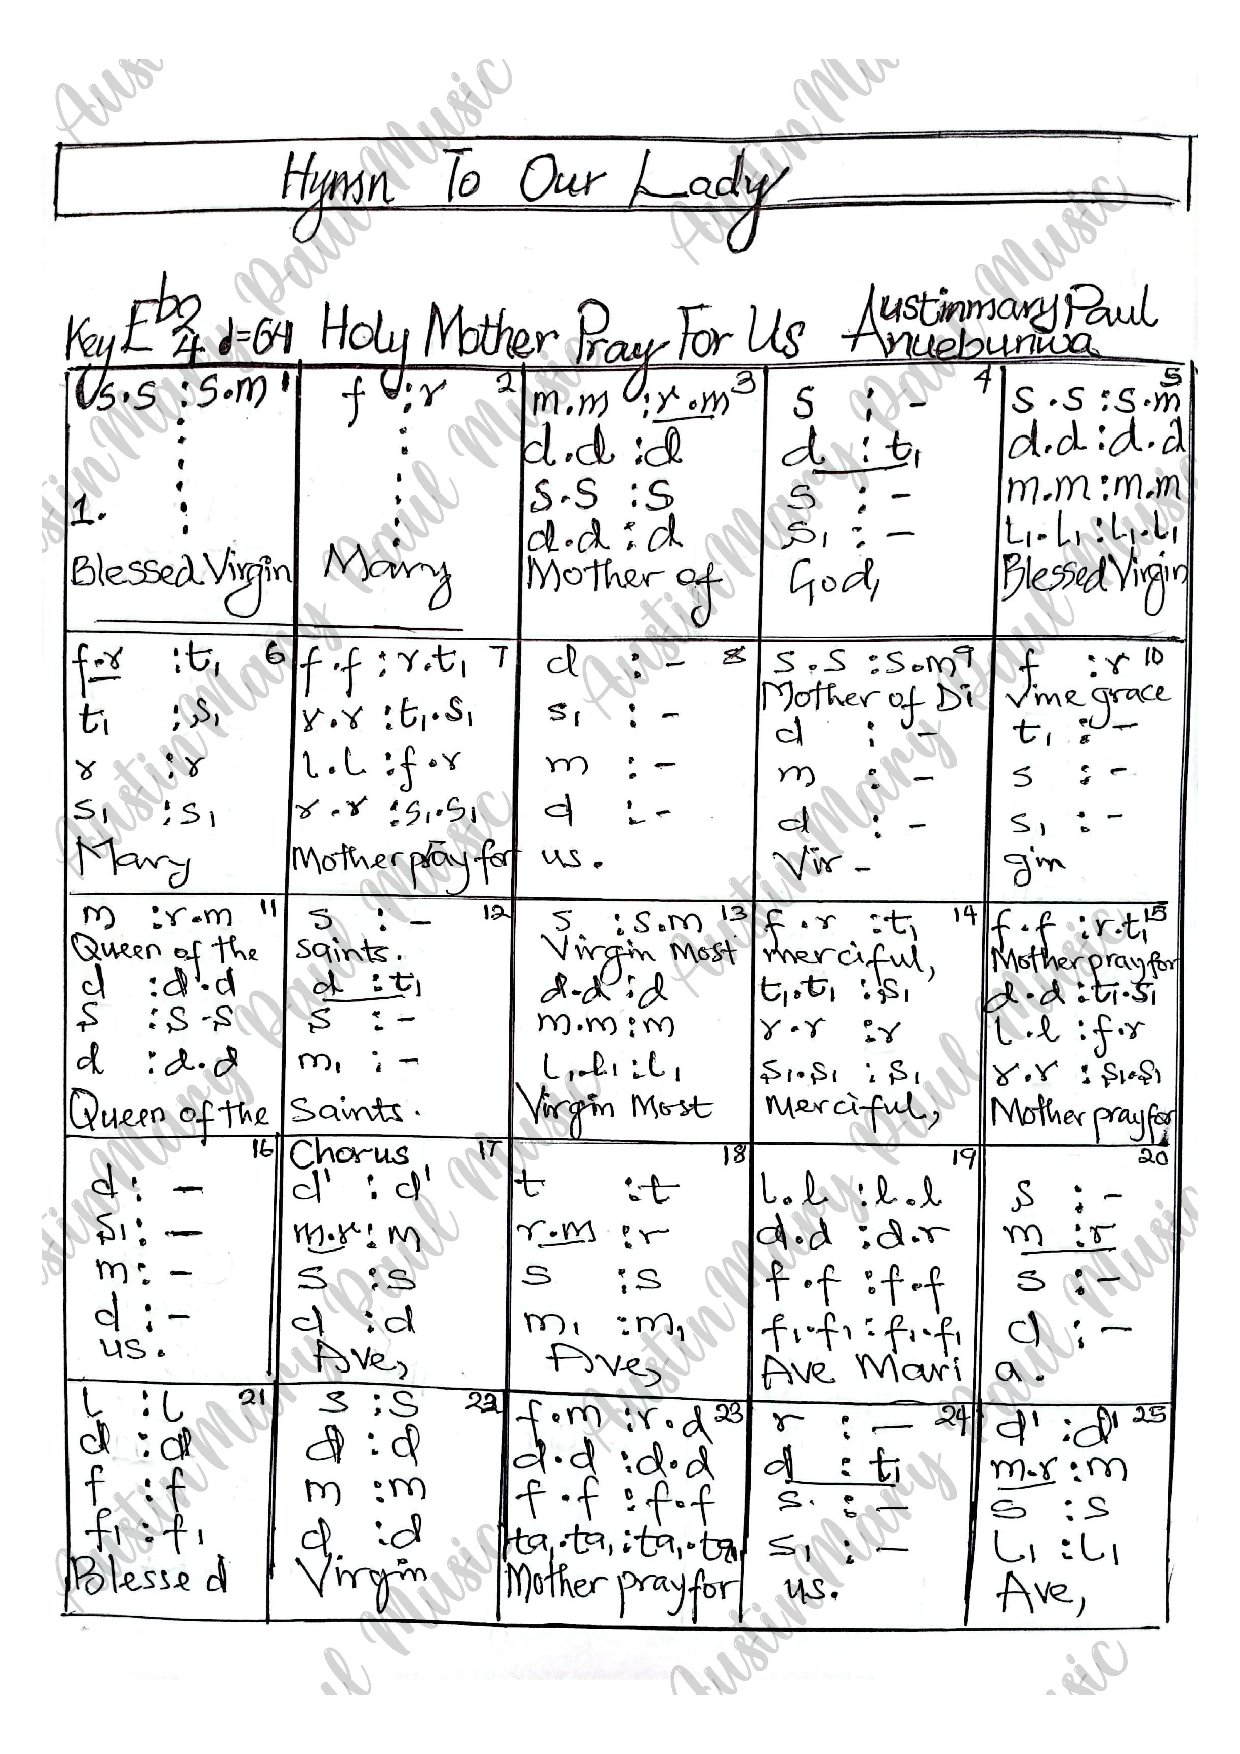 Hymn To Our Lady
Key Eb 2/4 d=64 Holy Mother Pray For Us Austinmary Paul Anuebunwa
s.s : s.m 1
:
:
1. :
Blessed Virgin
f : r 2
:
:
:
Mary
m.m : r.m 3
d.d : d
s.s : s
d.d : d
Mother of
s : - 4
d : t₁
s : -
s₁ : -
God,
s.s : s.m 5
d.d : d.d
m.m : m.m
l₁.l₁ : l₁.l₁
Blessed Virgin
f.r : t₁ 6
t₁ : s₁
r : r
s₁ : s₁
Mary
f.f : r.t₁ 7
r.r : t₁.s₁
l.l : f.r
r.r : s₁.s₁
Mother pray for
d : - 8
s₁ : -
m : -
d : -
us.
s.s : s.m 9
Mother of Di
d : -
m : -
d : -
Vir -
f : r 10
Vine grace
t₁ : -
s : -
s₁ : -
gin
m : r.m 11
Queen of the
d : d.d
s : s.s
d : d.d
Queen of the
s : - 12
saints.
d : t₁
s : -
m₁ : -
Saints.
s : s.m 13
Virgin Most
d.d : d
m.m : m
l₁.l₁ : l₁
Virgin Most
f.r : t₁ 14
merciful,
t₁.t₁ : s₁
r.r : r
s₁.s₁ : s₁
Merciful,
f.f : r.t₁ 15
Mother pray for
d.d : t₁.s₁
l.l : f.r
r.r : s₁.s₁
Mother pray for
16
d : -
s₁ : -
m : -
d : -
us.
Chorus 17
d' : d'
m.r : m
s : s
d : d
Ave,
18
t : t
r.m : r
s : s
m₁ : m₁
Ave,
19
l.l : l.l
d.d : d.r
f.f : f.f
f₁.f₁ : f₁.f₁
Ave Mari
20
s : -
m : r
s : -
d : -
a.
l : l 21
d : d
f : f
f₁ : f₁
Blessed
s : s 22
d : d
m : m
d : d
Virgin
f.m : r.d 23
d.d : d.d
f.f : f.f
ta₁.ta₁ : ta₁.ta₁
Mother pray for
r : - 24
d : t₁
s : -
s₁ : -
us.
d' : d' 25
m.r : m
s : s
l₁ : l₁
Ave,
AustinMary Paul Music